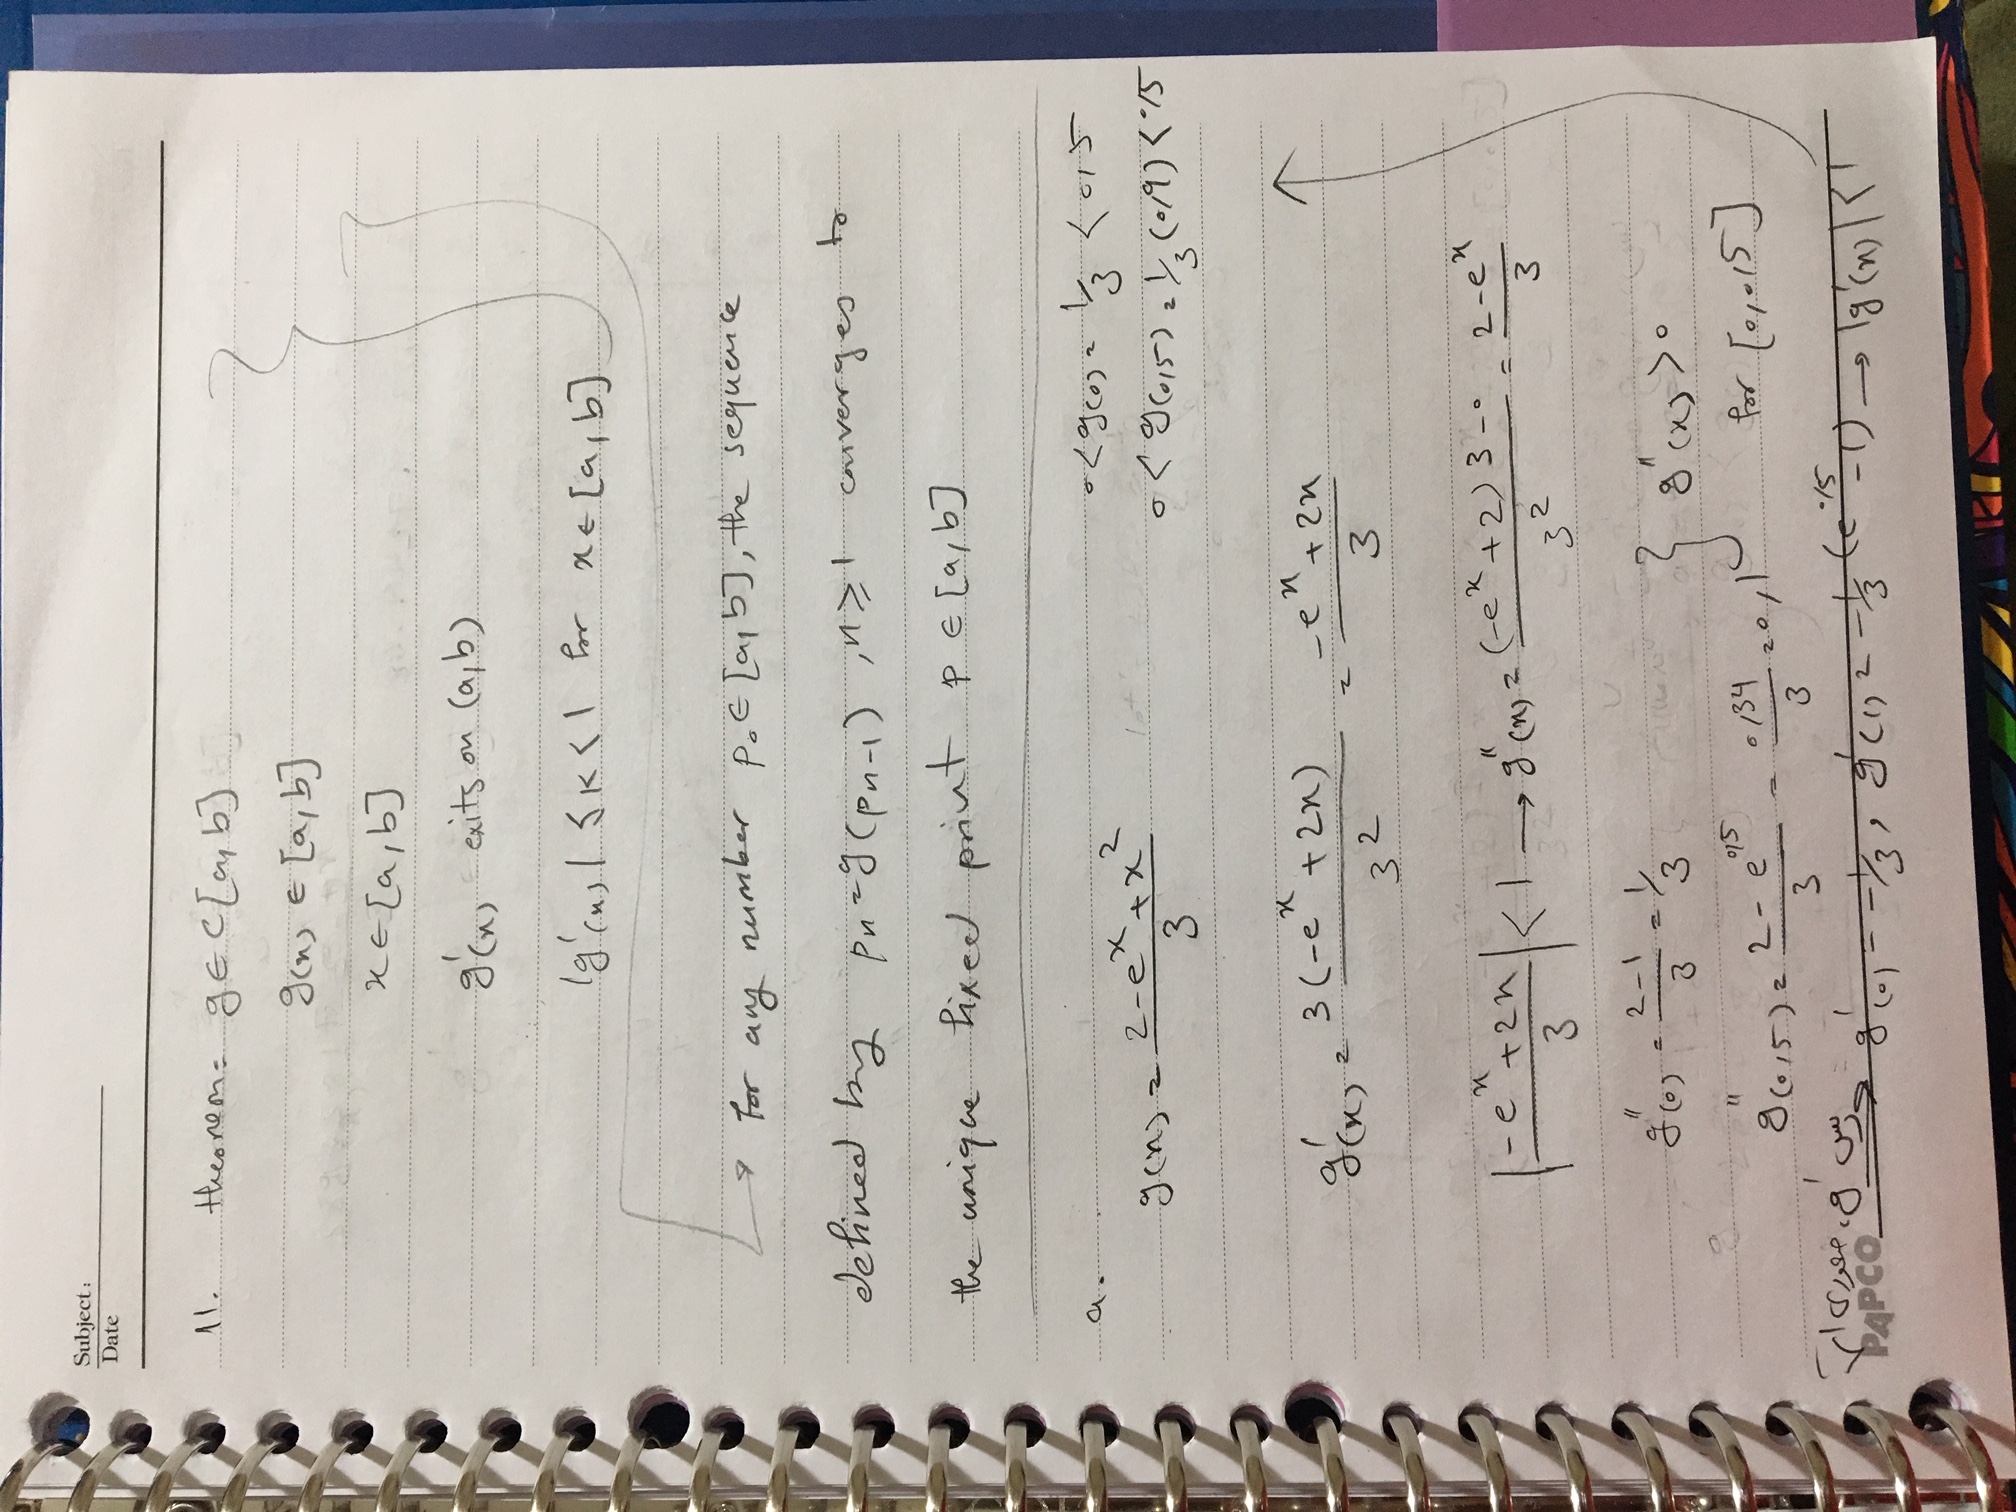 Subject:
Date
11. theorem= g∈C[a,b]
g(x) ∈ [a,b]
x∈[a,b]
g'(x) exits on (a,b)
|g'(x)| ≤ K < 1 for x∈[a,b]
→ for any number p₀∈[a,b], the sequence
defined by pn=g(pn-1) , n≥1 converges to
the unique fixed point p∈[a,b]
a.
0<g(0)=1/3<0,5
g(x) = (2-e^x+x^2)/3
0<g(0,5)=1/3(0,9)<0,5
g'(x) = 3(-e^x+2x)/3^2 = (-e^x+2x)/3
|(-e^x+2x)/3| < 1 → g''(x) = ((-e^x+2)3-0)/3^2 = (2-e^x)/3
g''(0) = (2-1)/3 = 1/3
} g''(x)>0
g''(0,5) = (2-e^0,5)/3 = 0,34/3 = 0,1
for [0,0,5]
پس g' صعودی است → g'(0) = -1/3, g'(1) = -1/3(e^0,5-1) → |g'(x)|<1
PAPCO